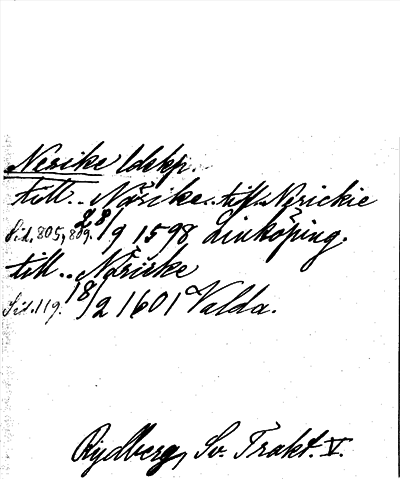 Nerike ldskp.
till.. Närike.. till.. Nerickie
Sid. 805, 809. 28/9 1598 Linköping.
till.. Näricke
Sid. 119. 18/2 1601 Valda.
Rydberg, Sv. Trakt. V.